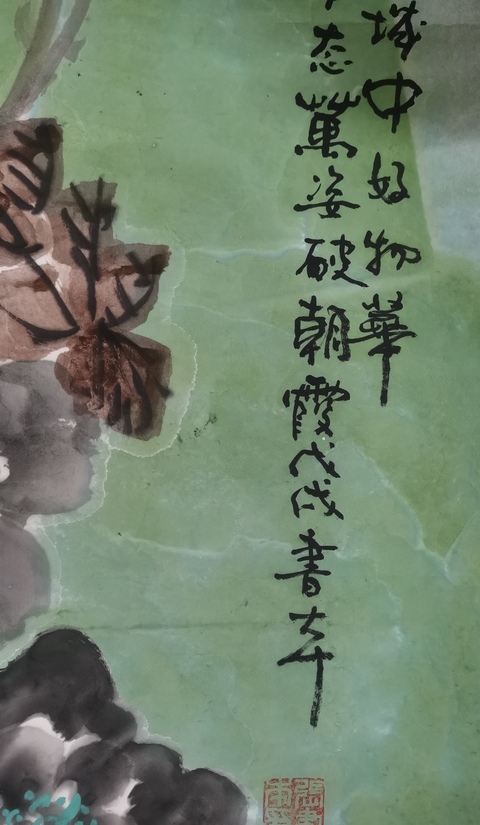 城中好物華
态萬姿破朝霞戊戌書